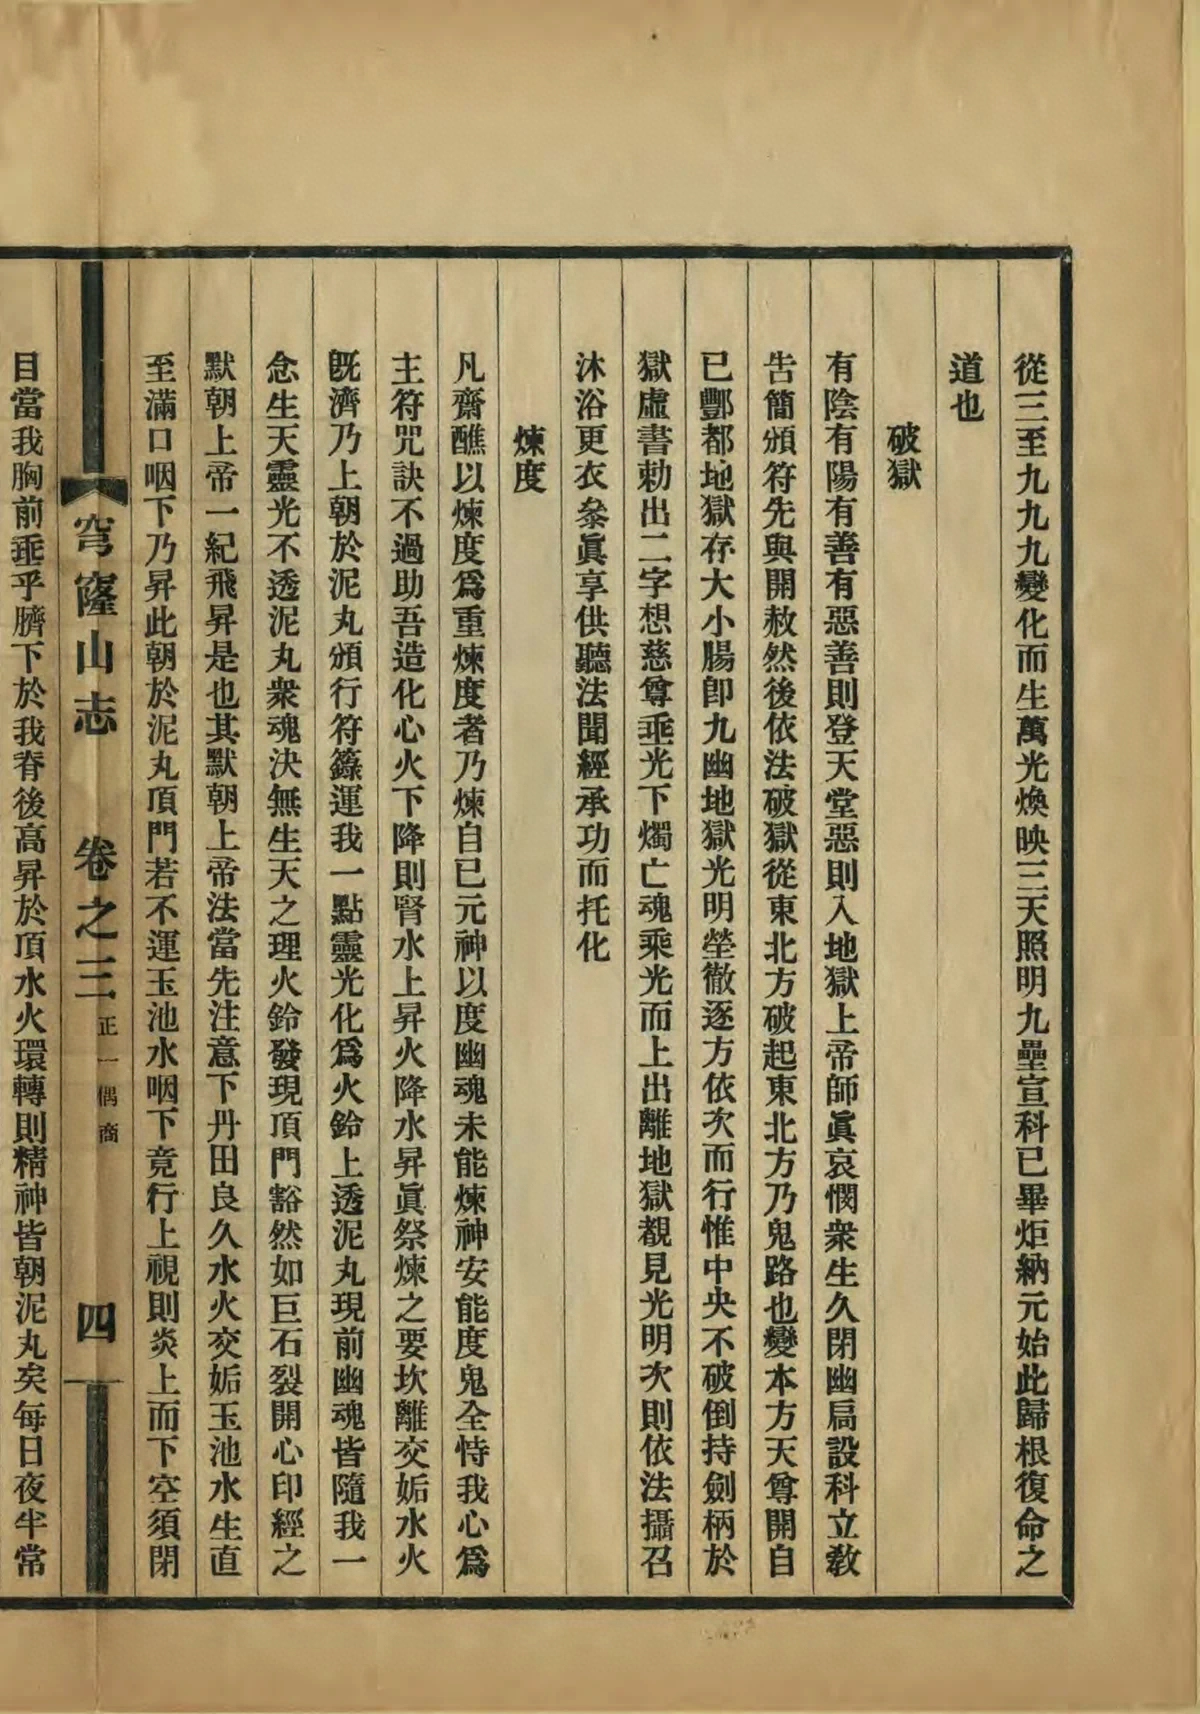 從三至九九九變化而生萬光煥映三天照明九壘宣科已畢炬納元始此歸根復命之
道也
破獄
有陰有陽有善有惡善則登天堂惡則入地獄上帝師眞哀憫衆生久閉幽扃設科立敎
告簡頒符先與開赦然後依法破獄從東北方破起東北方乃鬼路也變本方天尊開自
已酆都地獄存大小腸卽九幽地獄光明瑩徹逐方依次而行惟中央不破倒持劍柄於
獄虛書勅出二字想慈尊垂光下燭亡魂乘光而上出離地獄覩見光明次則依法攝召
沐浴更衣叅眞享供聽法聞經承功而托化
煉度
凡齋醮以煉度爲重煉度者乃煉自已元神以度幽魂未能煉神安能度鬼全恃我心爲
主符咒訣不過助吾造化心火下降則腎水上昇火降水昇眞祭煉之要坎離交姤水火
旣濟乃上朝於泥丸頒行符籙運我一點靈光化爲火鈴上透泥丸現前幽魂皆隨我一
念生天靈光不透泥丸衆魂決無生天之理火鈴發現頂門豁然如巨石裂開心印經之
默朝上帝一紀飛昇是也其默朝上帝法當先注意下丹田良久水火交姤玉池水生直
至滿口咽下乃昇此朝於泥丸頂門若不運玉池水咽下竟行上視則炎上而下空須閉
穹窿山志 卷之三 正一偶商 四
目當我胸前垂乎臍下於我脊後高昇於頂水火環轉則精神皆朝泥丸矣每日夜半常